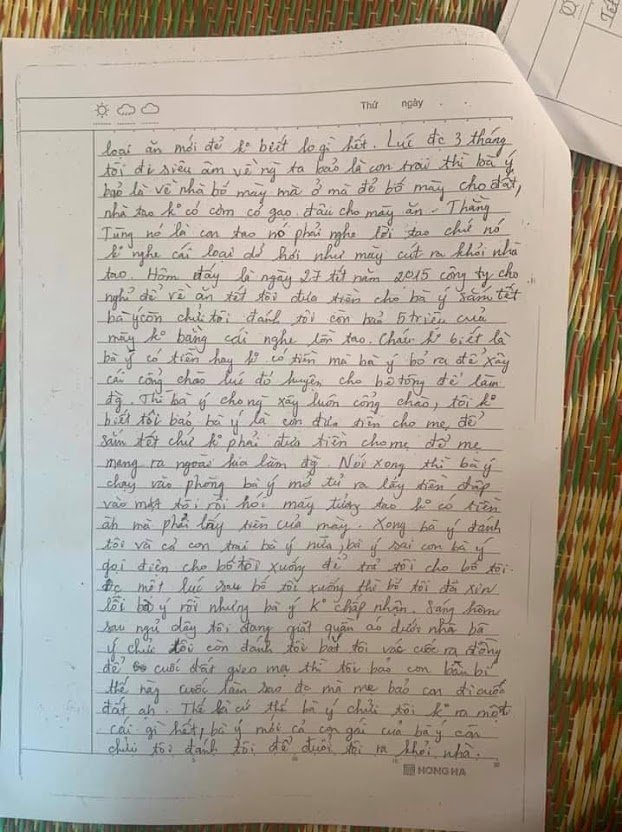 Thứ ngày
loại ăn mới đẻ ko biết lo gì hết. Lúc đc 3 tháng
tôi đi siêu âm về ng ta bảo là con trai thì bà ý
bảo là về nhà bố mày mà ở mà đẻ bố mày cho đất,
nhà tao ko có cơm có gạo đâu cho mày ăn. Thằng
Tùng nó là con tao nó phải nghe lời tao chứ nó
ko nghe cái loại dở hơi như mày cút ra khỏi nhà
tao. Hôm đấy là ngày 27 tết năm 2015 công ty cho
nghỉ để về ăn tết tôi đưa tiền cho bà ý sắm tết
bà ý còn chửi tôi đánh tôi còn bảo 5 triệu của
mày ko bằng cái nghe lồn tao. Cháu ko biết là
bà ý có tiền hay ko có tiền mà bà ý bỏ ra để xây
cái cổng chào lúc đó huyện cho bê tông để làm
đg. Thì bà ý cho ng xây luôn cổng chào, tôi ko
biết tôi bảo bà ý là con đưa tiền cho mẹ, để
sắm tết chứ ko phải đưa tiền cho mẹ để mẹ
mang ra ngoài kia làm đg. Nói xong thì bà ý
chạy vào phòng bà ý mở tủ ra lấy tiền đập
vào mặt tôi rồi hỏi mày tưởng tao ko có tiền
àh mà phải lấy tiền của mày. Xong bà ý đánh
tôi và cả con trai bà ý nữa, bà ý sai con bà ý
gọi điện cho bố tôi xuống để trả tôi cho bố tôi.
Đc một lúc sau bố tôi xuống thì bố tôi đã xin
lỗi bà ý rồi nhưng bà ý ko chấp nhận. Sang hôm
sau ngủ dậy tôi đang giặt quần áo dưới nhà bà
ý chửi tôi còn đánh tôi bắt tôi vác cuốc ra đồng
để cuốc đất gieo mạ thì tôi bảo con bầu bí
thế này cuốc làm sao đc mà mẹ bảo con đi cuốc
đất ah. Thế là cứ thế bà ý chửi tôi ko ra một
cái gì hết, bà ý mới cả con gái của bà ý còn
chửi tôi đánh tôi để đuổi tôi ra khỏi nhà.
HONG HA